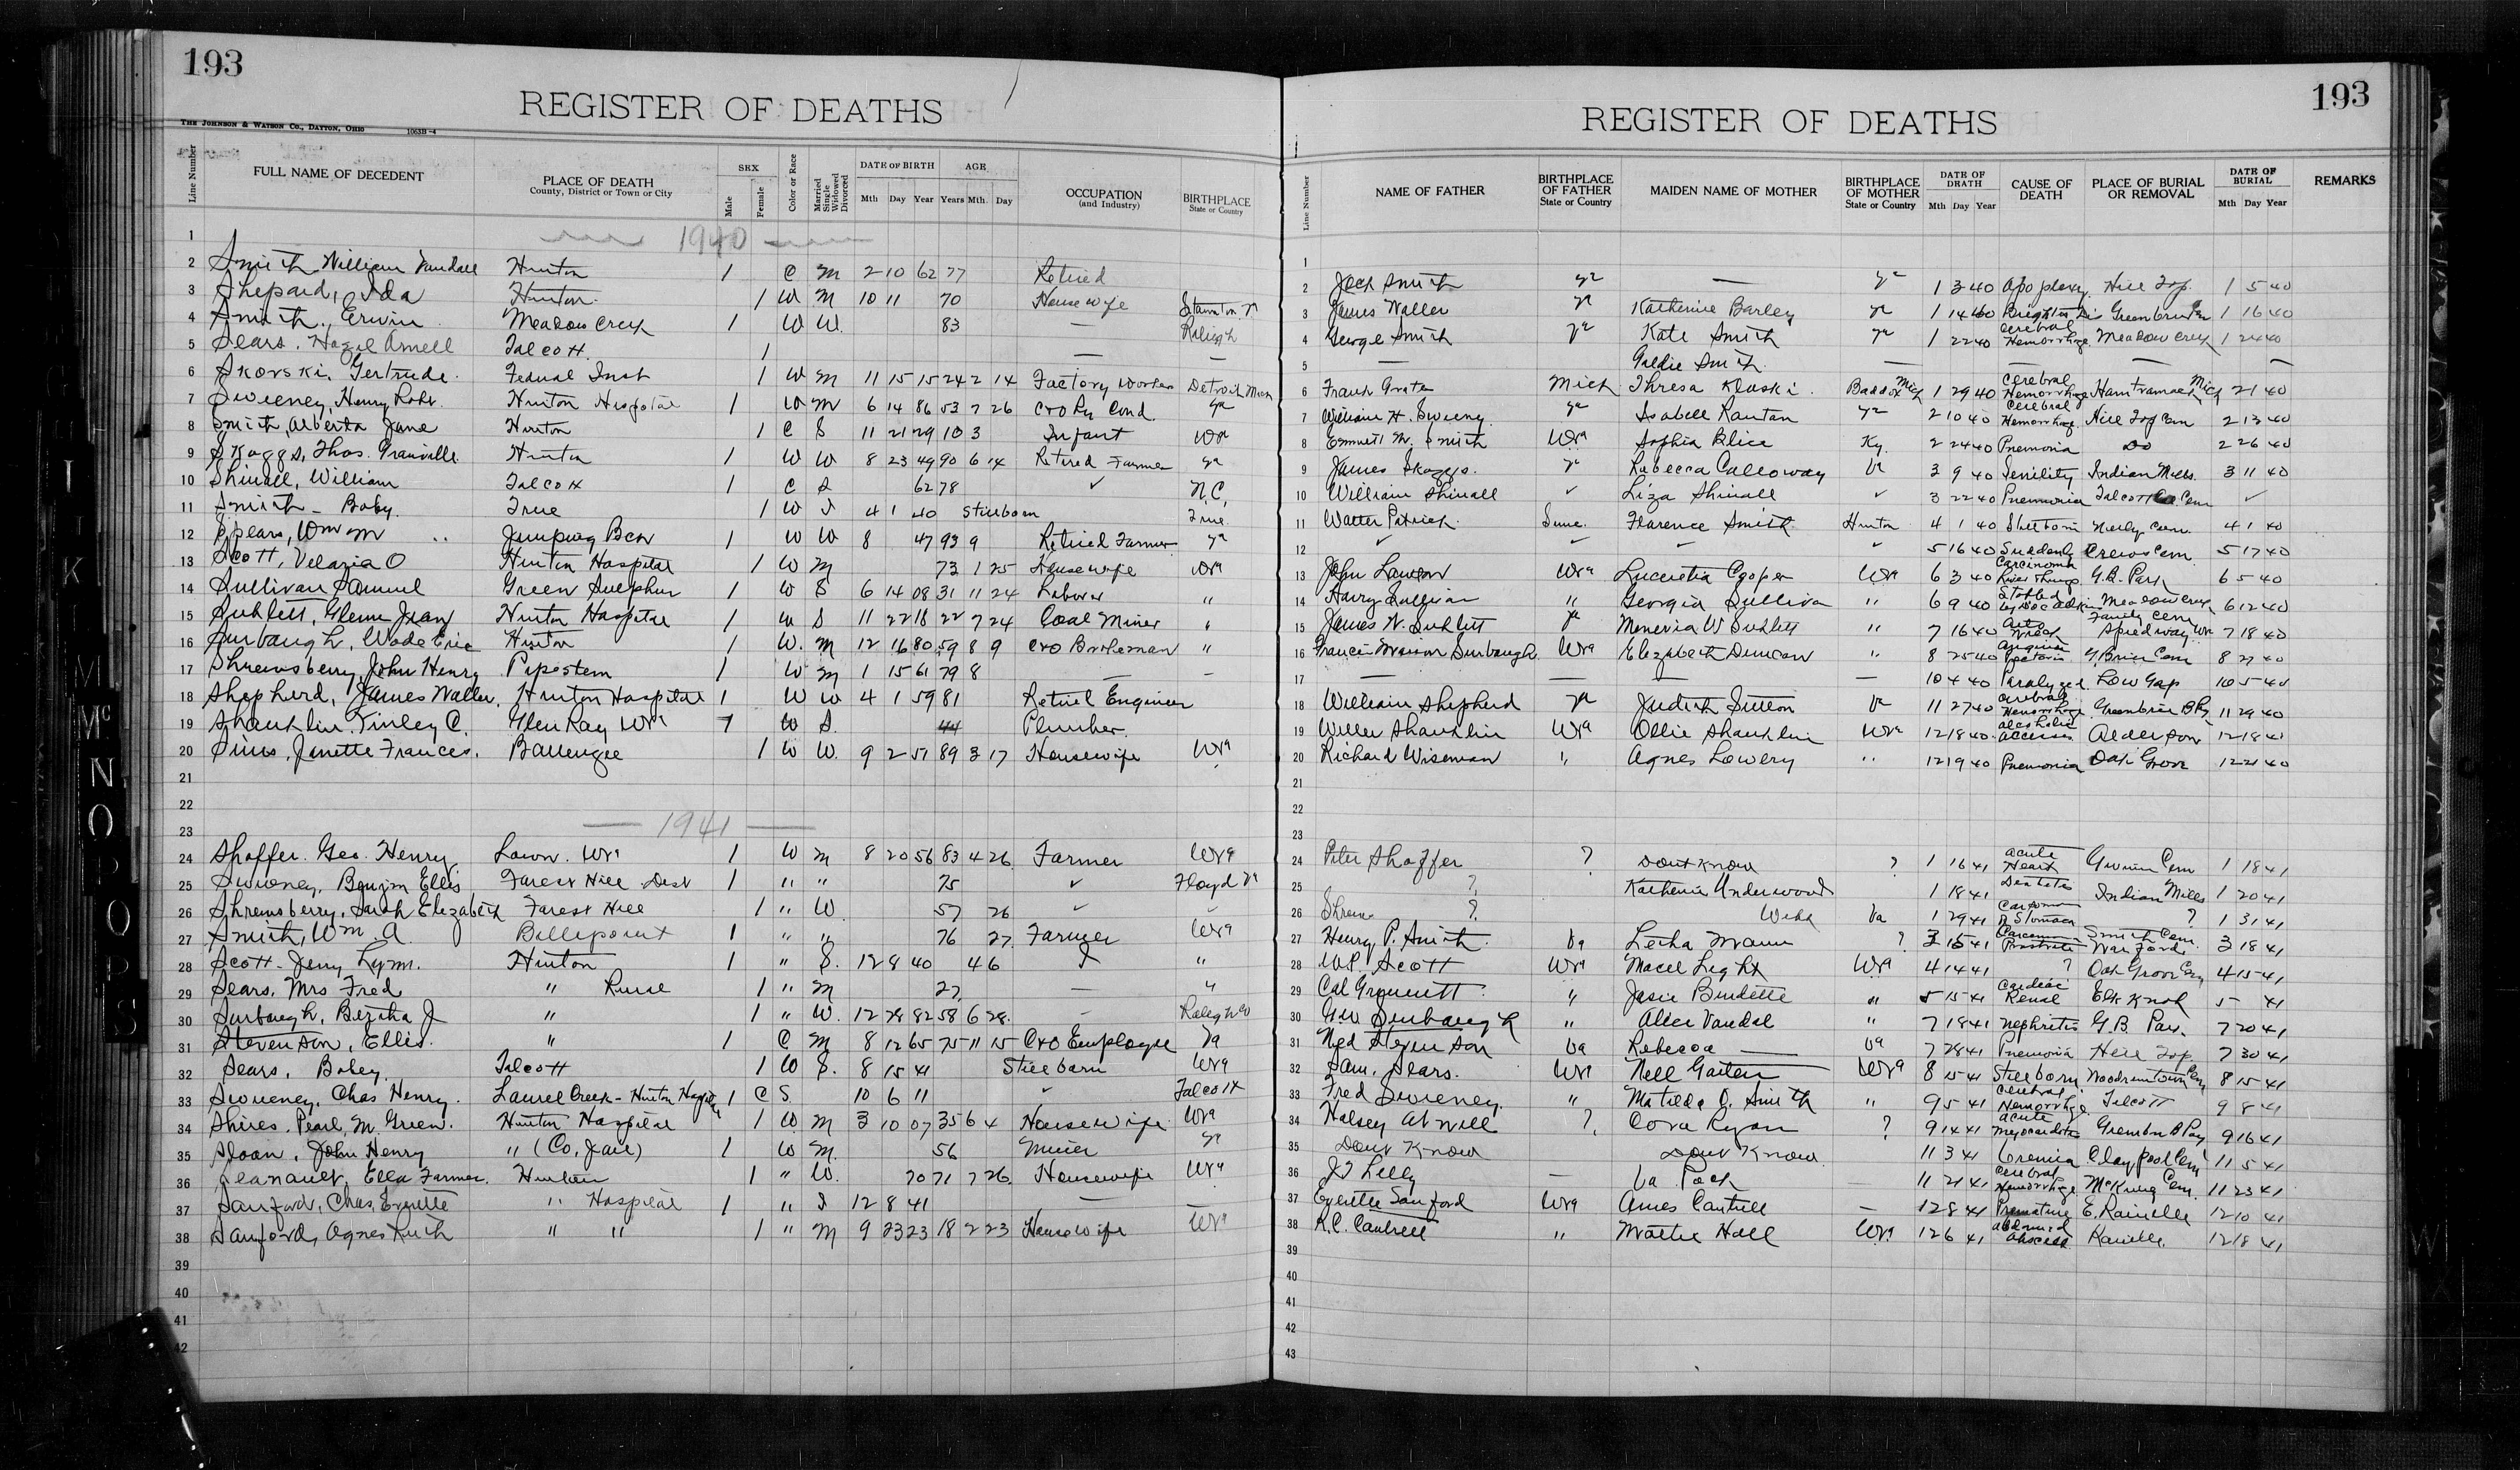 193
REGISTER OF DEATHS
THE JOHNSON & WATSON CO., DAYTON, OHIO 1063B-4
Line Number FULL NAME OF DECEDENT PLACE OF DEATH County, District or Town or City SEX Male Female Color or Race Married Single Widowed Divorced DATE OF BIRTH Mth Day Year AGE Years Mth. Day OCCUPATION (and Industry) BIRTHPLACE State or Country
1 1940
2 Smith William Hinton 1 C M 2 10 62 77 Retired
3 Shepard, Ida Hinton 1 W M 10 11 70 Housewife Staunton Va
4 Smith, Erwin Meadow Creek 1 W W. 83 — Raleigh
5 Sears, Hazel Arnell Talcott 1 — —
6 Skorski, Gertrude Federal Inst 1 W M 11 15 15 24 2 14 Factory Worker Detroit Mich
7 Sweeney, Henry Robt. Hinton Hospital 1 W M 6 14 86 53 7 26 C&O Ry Cond. Va
8 Smith, Alberta Jane Hinton 1 C S 11 21 29 10 3 Infant WVa
9 Skaggs, Thos. Granville Hinton 1 W W 8 23 49 90 6 14 Retired Farmer Va
10 Shinall, William Talcott 1 C S 62 78 ✓ N.C.
11 Smith - Baby. True 1 W S 4 1 40 Stillborn True
12 Spears, Wm M Jumping Bcn 1 W W 8 47 93 9 Retired Farmer Va
13 Scott, Velazia O Hinton Hospital 1 W M 73 1 25 Housewife WVa
14 Sullivan Samuel Green Sulphur 1 W S 6 14 08 31 11 24 Laborer "
15 Sublett, Glenn Jean Hinton Hospital 1 W S 11 22 18 22 7 24 Coal Miner "
16 Surbaugh, Wade Eric Hinton 1 W. M 12 16 80 59 8 9 C&O Brakeman "
17 Shrewsberry, John Henry Pipestem 1 W M 1 15 61 79 8 — —
18 Shepherd, James Waller, Hinton Hospital 1 W W 4 1 59 81 Retired Engineer
19 Shanklin, Finley C. Glen Ray WVa 1 W S. 44 Plumber.
20 Sims, Janette Frances. Ballengee 1 W W. 9 2 51 89 3 17 Housewife WVa
21
22
23 1941
24 Shaffer, Geo. Henry Lawn. WVa 1 W M 8 20 56 83 4 26 Farmer WVa
25 Sweeney, Benjm Ellis Forest Hill Dist 1 " " 75 ✓ Floyd Va
26 Shrewsberry, Sarah Elizabeth Forest Hill 1 " W 57 26 ✓
27 Smith, Wm. A. Bellepoint 1 " " 76 27 Farmer WVa
28 Scott - Jerry Lynn. Hinton 1 " S. 12 8 40 4 6 "
29 Sears, Mrs Fred " Rural 1 " M 27 — "
30 Surbaugh, Bertha J " 1 " W. 12 28 82 58 6 28 — Raleigh Co
31 Stevenson, Ellis. " 1 C M 8 12 65 75 11 15 C&O Employee Va
32 Sears, Baby. Talcott 1 W S. 8 15 41 Stillborn WVa
33 Sweeney, Chas Henry. Laurel Creek - Hinton Hospital 1 C S 10 6 11 ✓ Talcott
34 Shires, Pearl M. Green. Hinton Hospital 1 W M 3 10 07 35 6 4 Housewife WVa
35 Sloan, John Henry " (Co. Jail) 1 W M 56 Miner Va
36 Ella Farmer. Hinton 1 " W. 70 71 7 26 Housewife WVa
37 Sanford, Chas, Everette " Hospital 1 " S 12 8 41 — —
38 Sanford, Agnes Ruth " " 1 " M 9 23 23 18 2 23 Housewife WVa
39
40
41
42
193
REGISTER OF DEATHS
Line Number NAME OF FATHER BIRTHPLACE OF FATHER State or Country MAIDEN NAME OF MOTHER BIRTHPLACE OF MOTHER State or Country DATE OF DEATH Mth Day Year CAUSE OF DEATH PLACE OF BURIAL OR REMOVAL DATE OF BURIAL Mth Day Year REMARKS
1
2 Jack Smith Va — Va 1 3 40 Apoplexy Hill Top 1 5 40
3 James Waller Va Katherine Barley Va 1 14 40 Brights Di 1 16 40
4 George Smith Va Kate Smith Va 1 22 40 Cerebral Hemorrhage Meadow Creek 1 24 40
5 — Goldie Smith — — —
6 Frank Mich Thresa Mich 1 29 40 Cerebral Hemorrhage Hamtramack Mich 2 1 40
7 William H. Sweeny Va Isabell Va 2 10 40 Cerebral Hemorrhage Hill Top Cem 2 13 40
8 Emmett M. Smith WVa Sophia Ky. 2 24 40 Pnemonia Do 2 26 40
9 James Skaggs. Va Rebecca Calloway Va 3 9 40 Senility Indian Mills. 3 11 40
10 William Shinall ✓ Liza Shinall ✓ 3 22 40 Pnemonia Talcott Cem ✓
11 Walter Patrick Sum. Florence Smith Hinton 4 1 40 Stillborn Neely Cem. 4 1 40
12 ✓ ✓ — ✓ 5 16 40 Suddenly Crews Cem. 5 17 40
13 John Lawson WVa Lucretia Cooper WVa 6 3 40 Carcinoma G.B. Park 6 5 40
14 Harry Sullivan " Georgia Sulliva " 6 9 40 Stabbed Meadow Creek 6 12 40
15 James W. Sublett Va Menervia W Sublett " 7 16 40 Auto Wreck Family Cem Speedway WVa 7 18 40
16 Francis Surbaugh WVa Elizabeth Duncan " 8 25 40 Angina Pectoris G. Brier Cem 8 27 40
17 — — — — 10 4 40 Paralyzed Low Gap 10 5 40
18 William Shepherd Va Judith Sutton Va 11 27 40 Cerebral Hemorrhage Greenbrier B Pk 11 29 40
19 Willer Shanklin WVa Ollie Shanklin WVa 12 18 40 Alcoholic Alderson 12 18 41
20 Richard Wiseman " Agnes Lowery " 12 19 40 Pnemonia Oak Grove 12 21 40
21
22
23
24 Peter Shaffer ? Dont Know ? 1 16 41 Acute Heart Gwinn Cem 1 18 41
25 ? Katherine Underwood 1 18 41 Indian Mills 1 20 41
26 Shrew ? Webb Va 1 29 41 Stomach ? 1 31 41
27 Henry P. Smith. Va Letha Mann ? 3 15 41 Prostrate Smith Cem. War Ford 3 18 41
28 W.P. Scott WVa Macel Light WVa 4 14 41 ? Oak Grove Cem 4 15 41
29 Cal " Josie Burdette " 5 15 41 Cardiac Renal Elk Knob 5 41
30 G.W Surbaugh " Alice Vandal " 7 18 41 Nephritis G.B. Park. 7 20 41
31 Ned Stevenson Va Rebecca — Va 7 28 41 Pnemonia Hill Top. 7 30 41
32 Sam. Sears. WVa Nell Gaiten WVa 8 15 41 Stillborn Cem 8 15 41
33 Fred Sweeney. " Matilda O. Smith " 9 5 41 Cerebral Hemorrhge Talcott 9 8 41
34 Halsey Atwill ? Cora Ryan ? 9 14 41 Acute Myocarditis Greenbrier B Park 9 16 41
35 Dont Know Dont Know 11 3 41 Uremia Claypool Cem 11 5 41
36 J T Lilly — Va Pack — 11 21 41 Cerebral Hemorrhge Cem. 11 23 41
37 Everette Sanford WVa Cantrell — 12 8 41 Premature E. Rainelle 12 10 41
38 R.C. Cantrell " Mattie Hall WVa. 12 6 41 Abscess Rainelle. 12 18 41
39
40
41
42
43
I
J
K
M
Mc
N
O
P
Q
S